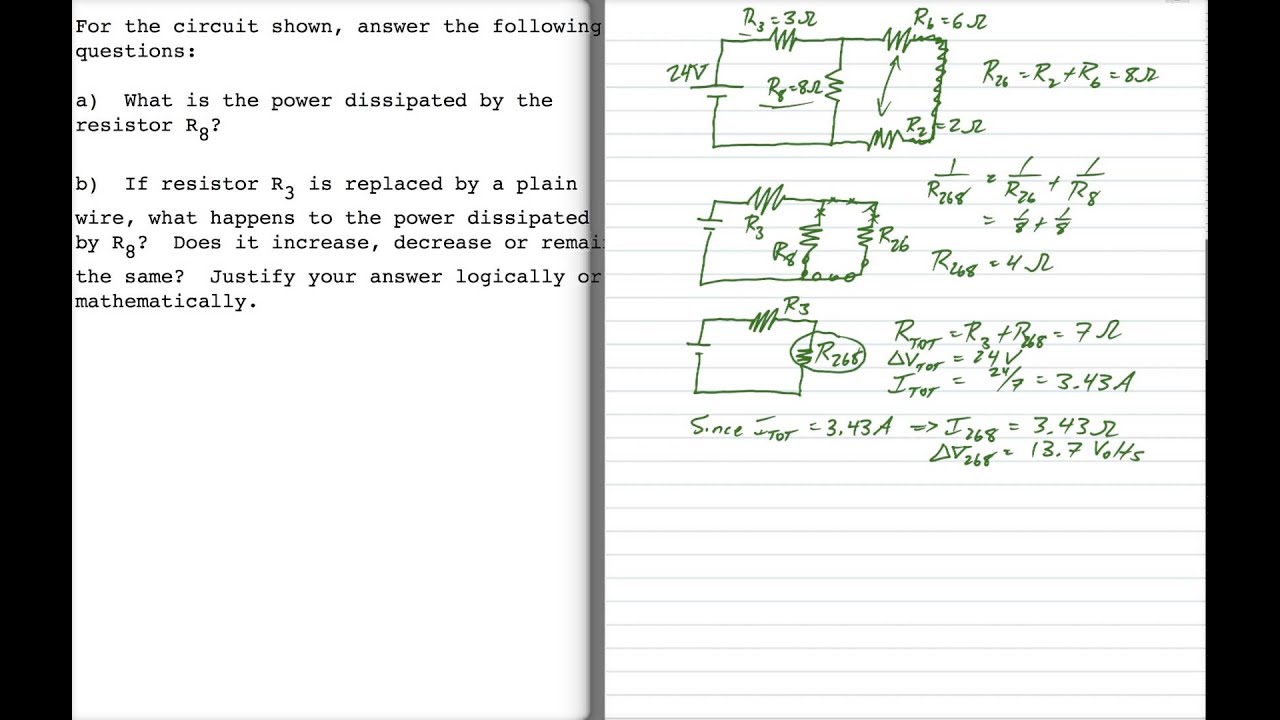 For the circuit shown, answer the following
questions:
a) What is the power dissipated by the
resistor R8?
b) If resistor R3 is replaced by a plain
wire, what happens to the power dissipated
by R8? Does it increase, decrease or remai
the same? Justify your answer logically or
mathematically.
R3 = 3Ω
R6 = 6Ω
24V
R8 = 8Ω
R26 = R2 + R6 = 8Ω
R2 = 2Ω
1/R268 = 1/R26 + 1/R8
= 1/8 + 1/8
R3
R8
R26
R268 = 4Ω
R3
R268
RTOT = R3 + R268 = 7Ω
ΔVTOT = 24V
ITOT = 24/7 = 3.43A
Since ITOT = 3.43A => I268 = 3.43Ω
ΔV268 = 13.7 Volts